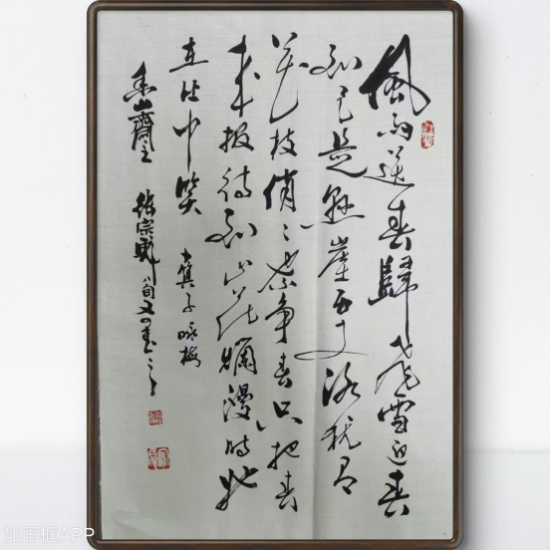 風雨送春歸飛雪迎春
到已是懸崖百丈冰猶有
花枝俏〻也不争春只把春
来报待到山花爛漫時她
在丛中笑 卜算子咏梅
山齋主 宗 八旬又
加画框APP